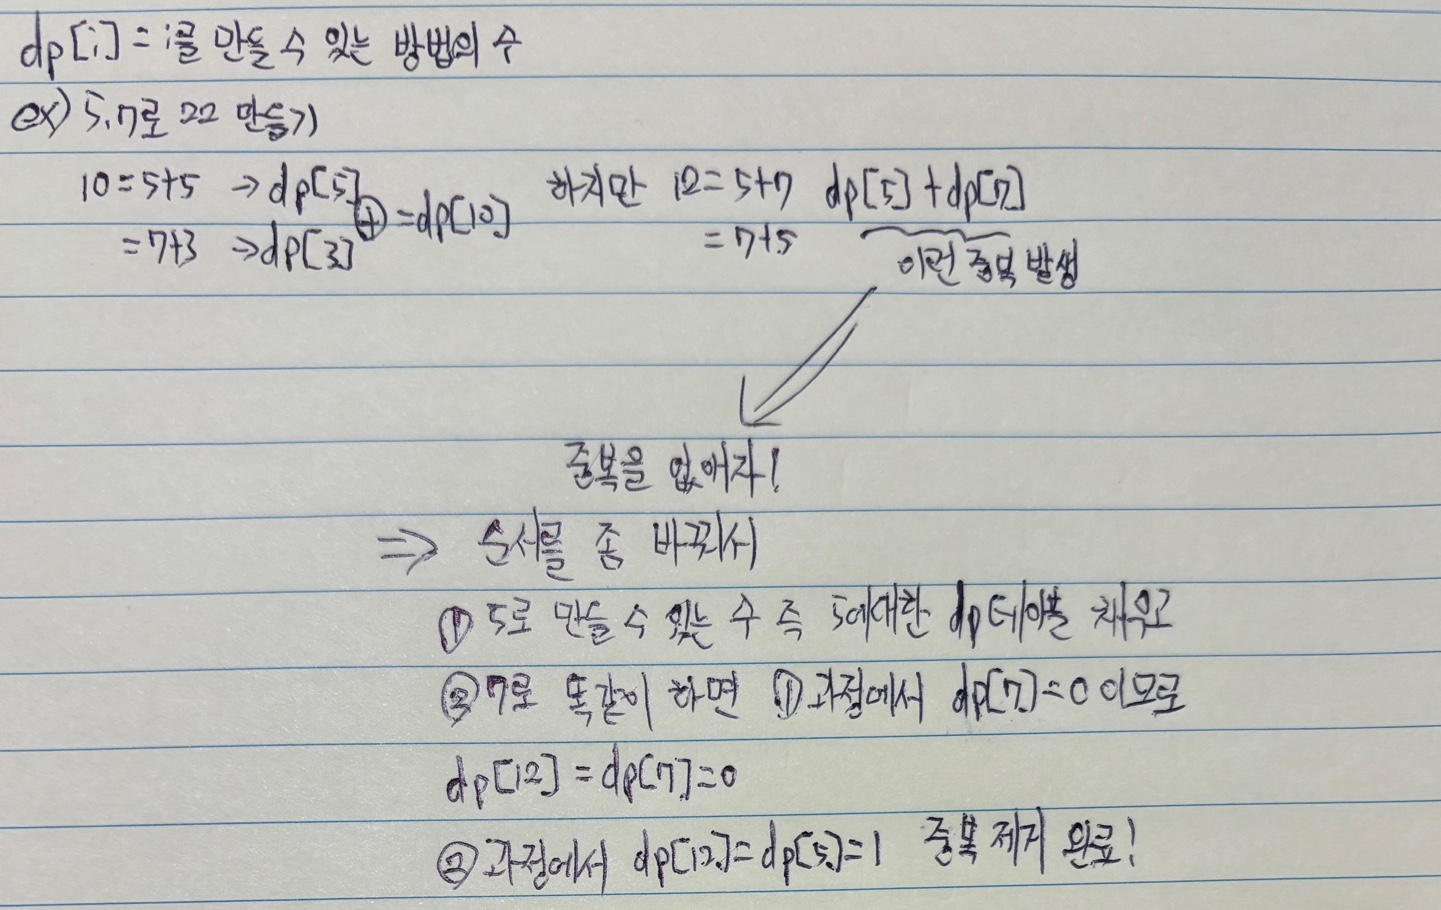 dp[i] = i를 만들 수 있는 방법의 수
ex) 5,7로 22 만들기
10 = 5+5 → dp[5] ⊕ = dp[10] 하지만 12 = 5+7 dp[5] + dp[7]
= 7+3 → dp[3] = 7+5 이런 중복 발생
중복을 없애자!
⇒ 순서를 좀 바꿔서
① 5로 만들 수 있는 수 즉 5에대한 dp테이블 채우고
② 7로 똑같이 하면 ①과정에서 dp[7]=0 이므로
dp[12] = dp[7]=0
②과정에서 dp[12]=dp[5]=1 중복 제거 완료!